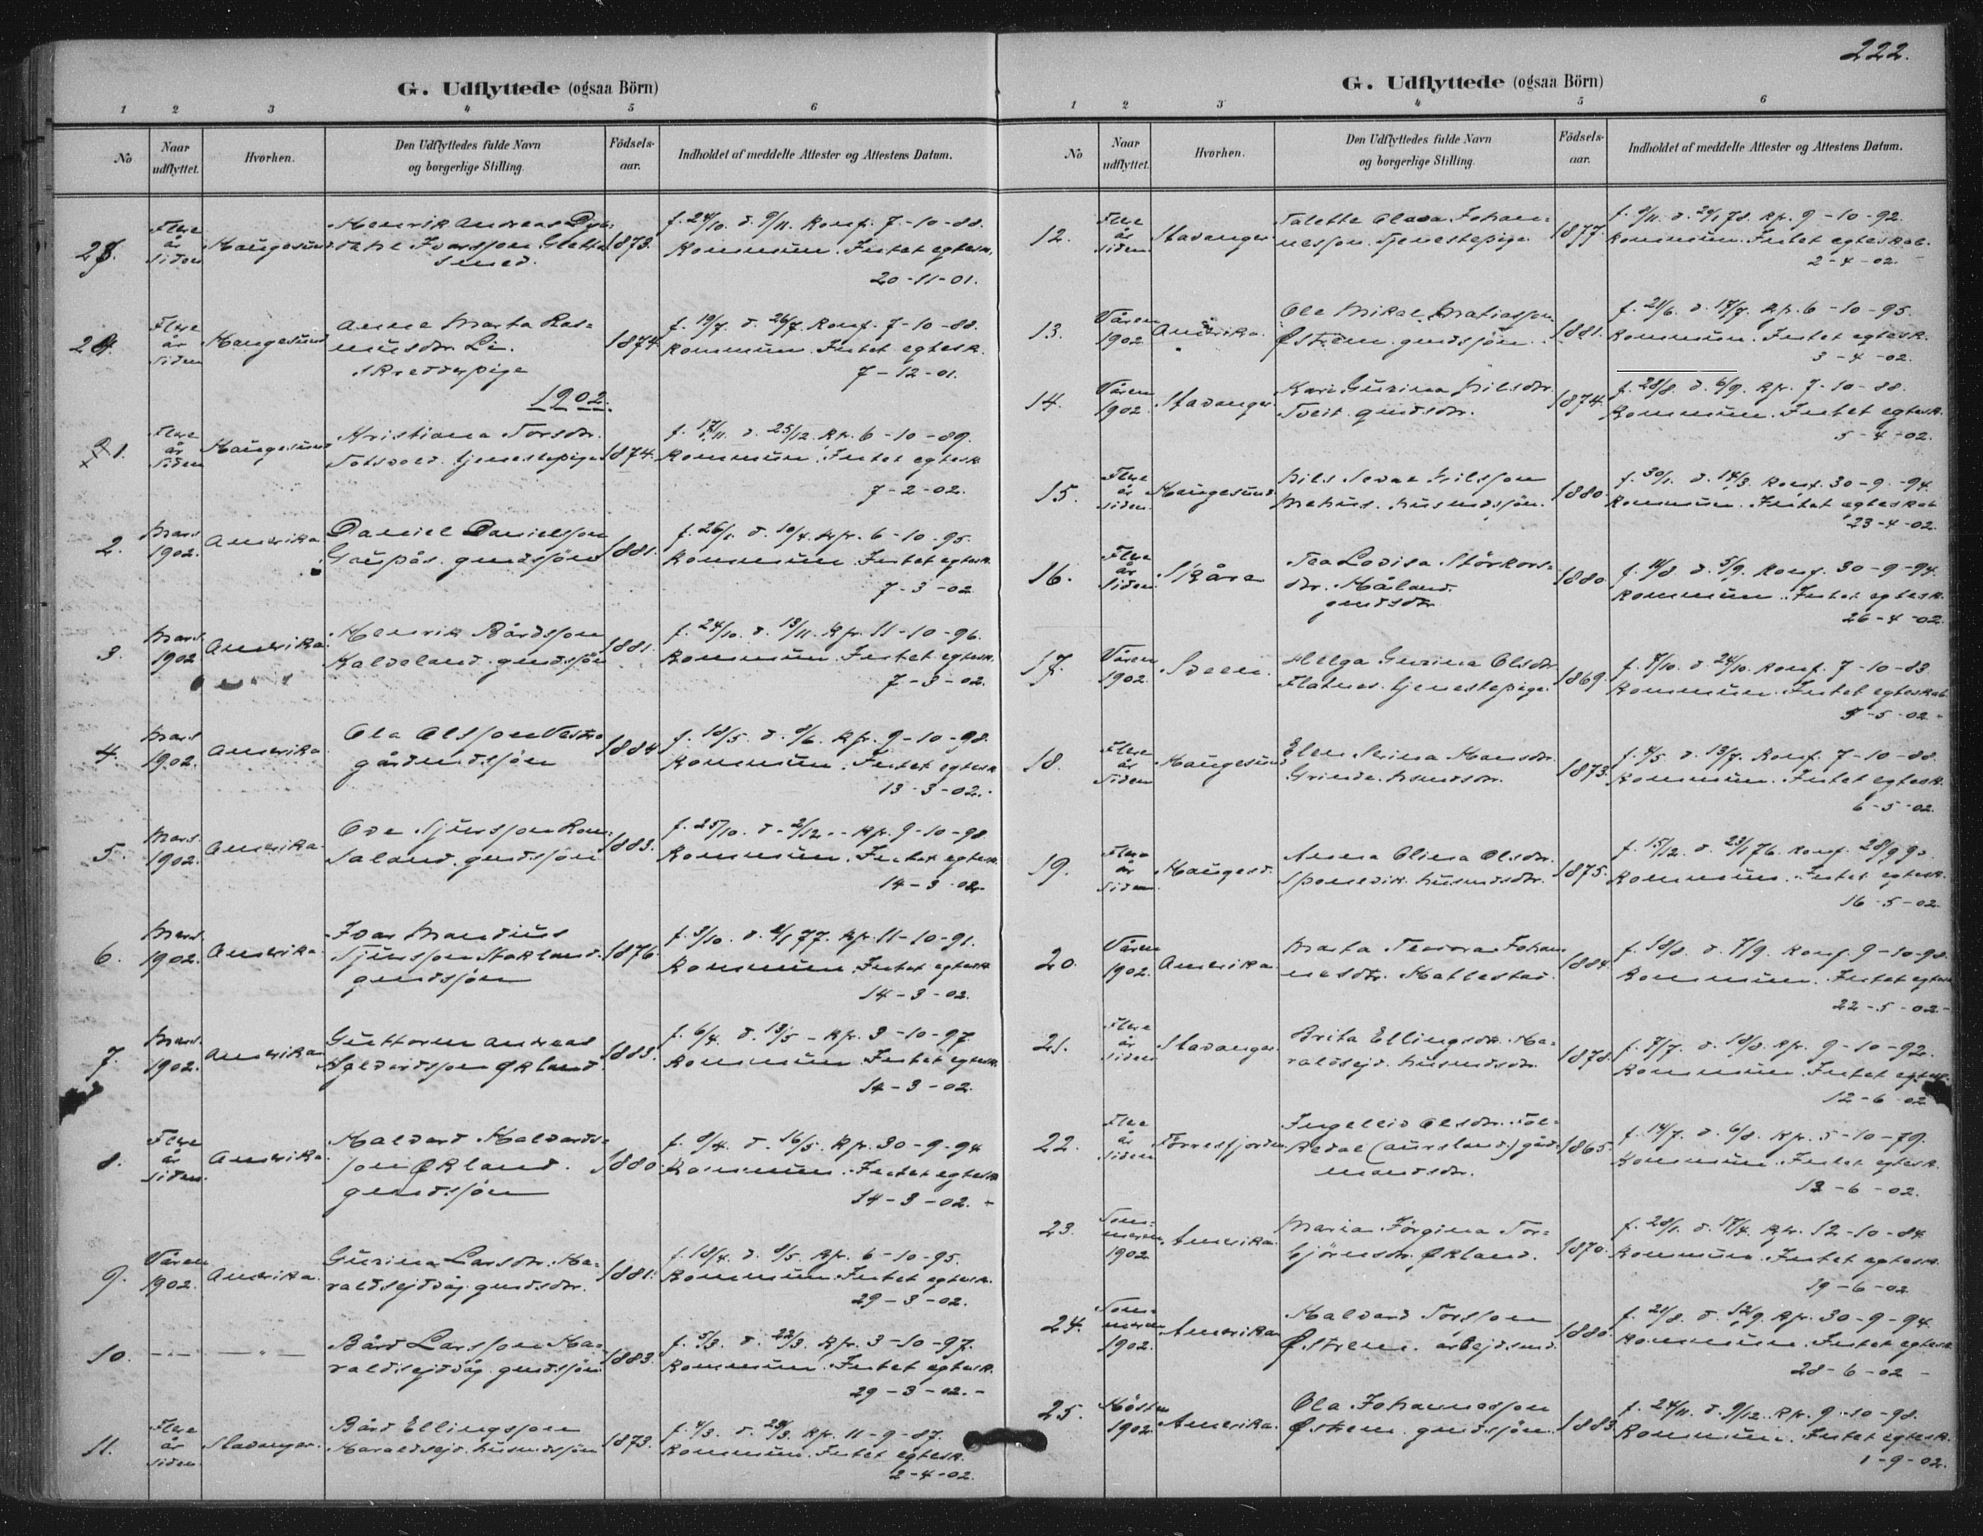 222.
G. Udflyttede (ogsaa Börn)
1 2 3 4 5 6
No
Naar udflyttet.
Hvorhen.
Den Udflyttedes fulde Navn
og borgerlige Stilling.
Födsels-
aar.
Indholdet af meddelte Attester og Attestens Datum.
Flere
år
siden
Haugesund
Henrik Andreas
Ivarsson
smed.
1873.
f. 24/10. d. 9/11. Konf. 7-10-88.
Kommun. Intet egtesk.
20-11-01.
Flere
år
siden
Haugesund
Anne Marta Ras=
musdtr. Li.
Skredderpige
1874
f. 19/7. d. 26/7. Konf. 7-10-88.
Kommun. Intet egtesk.
7-12-01.
1902.
1.
Flere
år
siden
Haugesund
Kristiana Torsdtr.
tjenestepige
1874.
f. 17/11. d. 25/12. Kf. 6-10-89.
Kommun. Intet egtesk
7-2-02.
2.
Mars
1902.
Amerika
Daniel Danielsson
Gaupås. gmdssjön
1881.
f. 26/1. d. 10/4. Kf. 6-10-95.
Kommun. Intet egtesk
7-3-02
3.
Mars
1902
Amerika.
Henrik Bårdsson
Kaldeland. gmdssjön
1881.
f. 24/10. d. 13/11. Kf. 11-10-96.
Kommun. Intet egtesk.
7-3-02.
4.
Mars
1902.
Amerika
Ola Olsson Vestre
gårdmdssjön
1884
f. 18/5. d. 8/6. Kf. 9-10-98.
Kommun. Intet egtesk
13-3-02.
5.
Mars.
1902.
Amerika.
Sjursson
saland. gmdssjön
1883.
f. 25/10. d. 2/12. Kf. 9-10-98
Kommun. Intet egtesk.
14-3-02.
6.
Mars.
1902.
Amerika.
Ivar Mandius
Sjursson Stokland.
gmdssjön
1876.
f. 3/10. d. 2/1 77. Kf. 11-10-91.
Kommun. Intet egtesk
14-3-02.
7.
Mars.
1902.
Amerika
Guttorm Andreas
Økland.
1883.
f. 6/4. d. 13/5 - Kf. 3-10-97
Kommun. Intet egtesk.
14-3-02.
8.
Flere
år
siden.
Amerika.
Halvard Halvards=
son Økland.
gmdssjön
1880
f. 9/4. d. 16/5. Kf. 30-9-94
Kommun. Intet egtesk
14-3-02. -
9.
Våren
1902.
Amerika.
Gurina Larsdtr. Ha=
raldsejdvåg. gmdsdtr.
1881.
f. 18/4. d. 8/5. Kf. 6-10-95.
Kommun. Intet egtesk.
29-3-02.
10.
- - -
- " -
Bård Larsson Ha=
raldsejdvåg. gmdssjön
1883.
f. 5/3. d. 22/3. Kf. 3-10-97.
Kommun. Intet egtesk.
29-3-02. -
11.
Flere
år
siden.
Stavanger.
Bård Ellingsson
Haraldsejd. husmdssjön
1873.
f. 4/3. d. 29/3. Kf. 11-9-87.
Kommun. Intet egtesk.
2-4-02.
G. Udflyttede (ogsaa Börn)
1 2 3 4 5 6
No
Naar
udflyttet.
Hvorhen.
Den Udflyttedes fulde Navn
og borgerlige Stilling.
Födsels-
aar.
Indholdet af meddelte Attester og Attestens Datum.
12.
Flere
år
siden
Stavanger
Talette Olava Johan=
nesson. Tjenestepige
1877.
f. 9/11. d. 20/1 78. Kf. 9-10-92.
Kommun. Intet egteskab.
2-4-02.
13.
Våren
1902
Amerika.
Ole Mikal Matiasson
Østrem. gmdssjön.
1881.
f. 21/6. d. 17/7. Kf. 6-10-95.
Kommun. Intet egtesk.
3-4-02.
14.
Våren
1902
Stavanger
Kari Gurina Nilsdtr.
Tveit. gmdsdtr.
1874.
f. 28/8. d. 6/9. Kf. 7-10-88.
Kommun. Intet egtesk.
5-4-02.
15.
Flere
år
siden.
Haugesund.
Nils Nilsson
Mehus. husmdssjön.
1880.
f. 30/1. d. 14/3. Konf. 30-9-94.
Kommun. Intet egteskab
23-4-02.
16.
Flere
år
siden.
Skåre
Tea Lovisa Störkors=
dtr. Håland.
gmdsdtr.
1880
f. 11/8. d. 5/9. Konf. 30-9-94.
Kommun. Intet egtesk.
26-4-02.
17.
Våren
1902.
Sveen.
Helga Gurina Olsdtr.
Flatnes. tjenestepige.
1869.
f. 8/10. d. 24/10. Konf. 7-10-83.
Kommun. Intet egteskab
3-5-02 -
18.
Flere
år
siden
Haugesund
Elen Serina Hansdtr.
Grinde. husmdsdtr.
1873.
f. 4/5. d. 13/7. Konf. 7-10-88.
Kommun. Intet egtesk.
6-5-02
19.
Flere
år
siden
Haugesd.
Anna Olina Olsdtr.
husmdsdtr.
1875.
f. 15/12. d. 23/1 76. Konf. 28/9 90.
Kommun. Intet egtesk.
16-5-02.
20.
Våren
1902.
Amerika
Marta Teodora Johan=
nesdtr. Hallestad.
1884.
f. 10/8. d. 7/9. Konf. 9-10-98
Kommun. Intet egtesk
22-5-02 -
21.
Flere
år
siden
Stavanger
Brita Ellingsdtr. Ha=
raldsejd. husmdsdtr.
1878.
f. 7/7. d. 18/8. Kf. 9-10-92.
Kommun. Intet egtesk.
12-6-02
22.
Flere
år
siden
Førresfjorden
Ingeleid Olsdtr.
(Aursland) gård=
mandsdtr.
1865.
f. 14/7. d. 6/8. Kf. 5-10-79.
Kommun. Intet egtesk.
12-6-02.
23.
Som=
meren
1902.
Amerika.
Maria Jörgina Tor=
björnsdtr. Økland.
1870.
f. 28/1. d. 17/4. Kf. 12-10-84.
Kommun. Intet egtesk.
19-6-02
24.
Som=
meren
1902.
Amerika
Halvard Torsson
Østrem. arbejdsmd.
1880.
f. 21/8. d. 12/9. Kf. 30-9-94.
Kommun. Intet egtesk.
28-6-02 -
25.
Hösten
1902.
Amerika.
Ola Johannesson
Østrem. gmdssjön.
1883.
f. 24/11. d. 9/12. Kf. 9-10-98.
Kommun. Intet egtesk.
1-9-02.